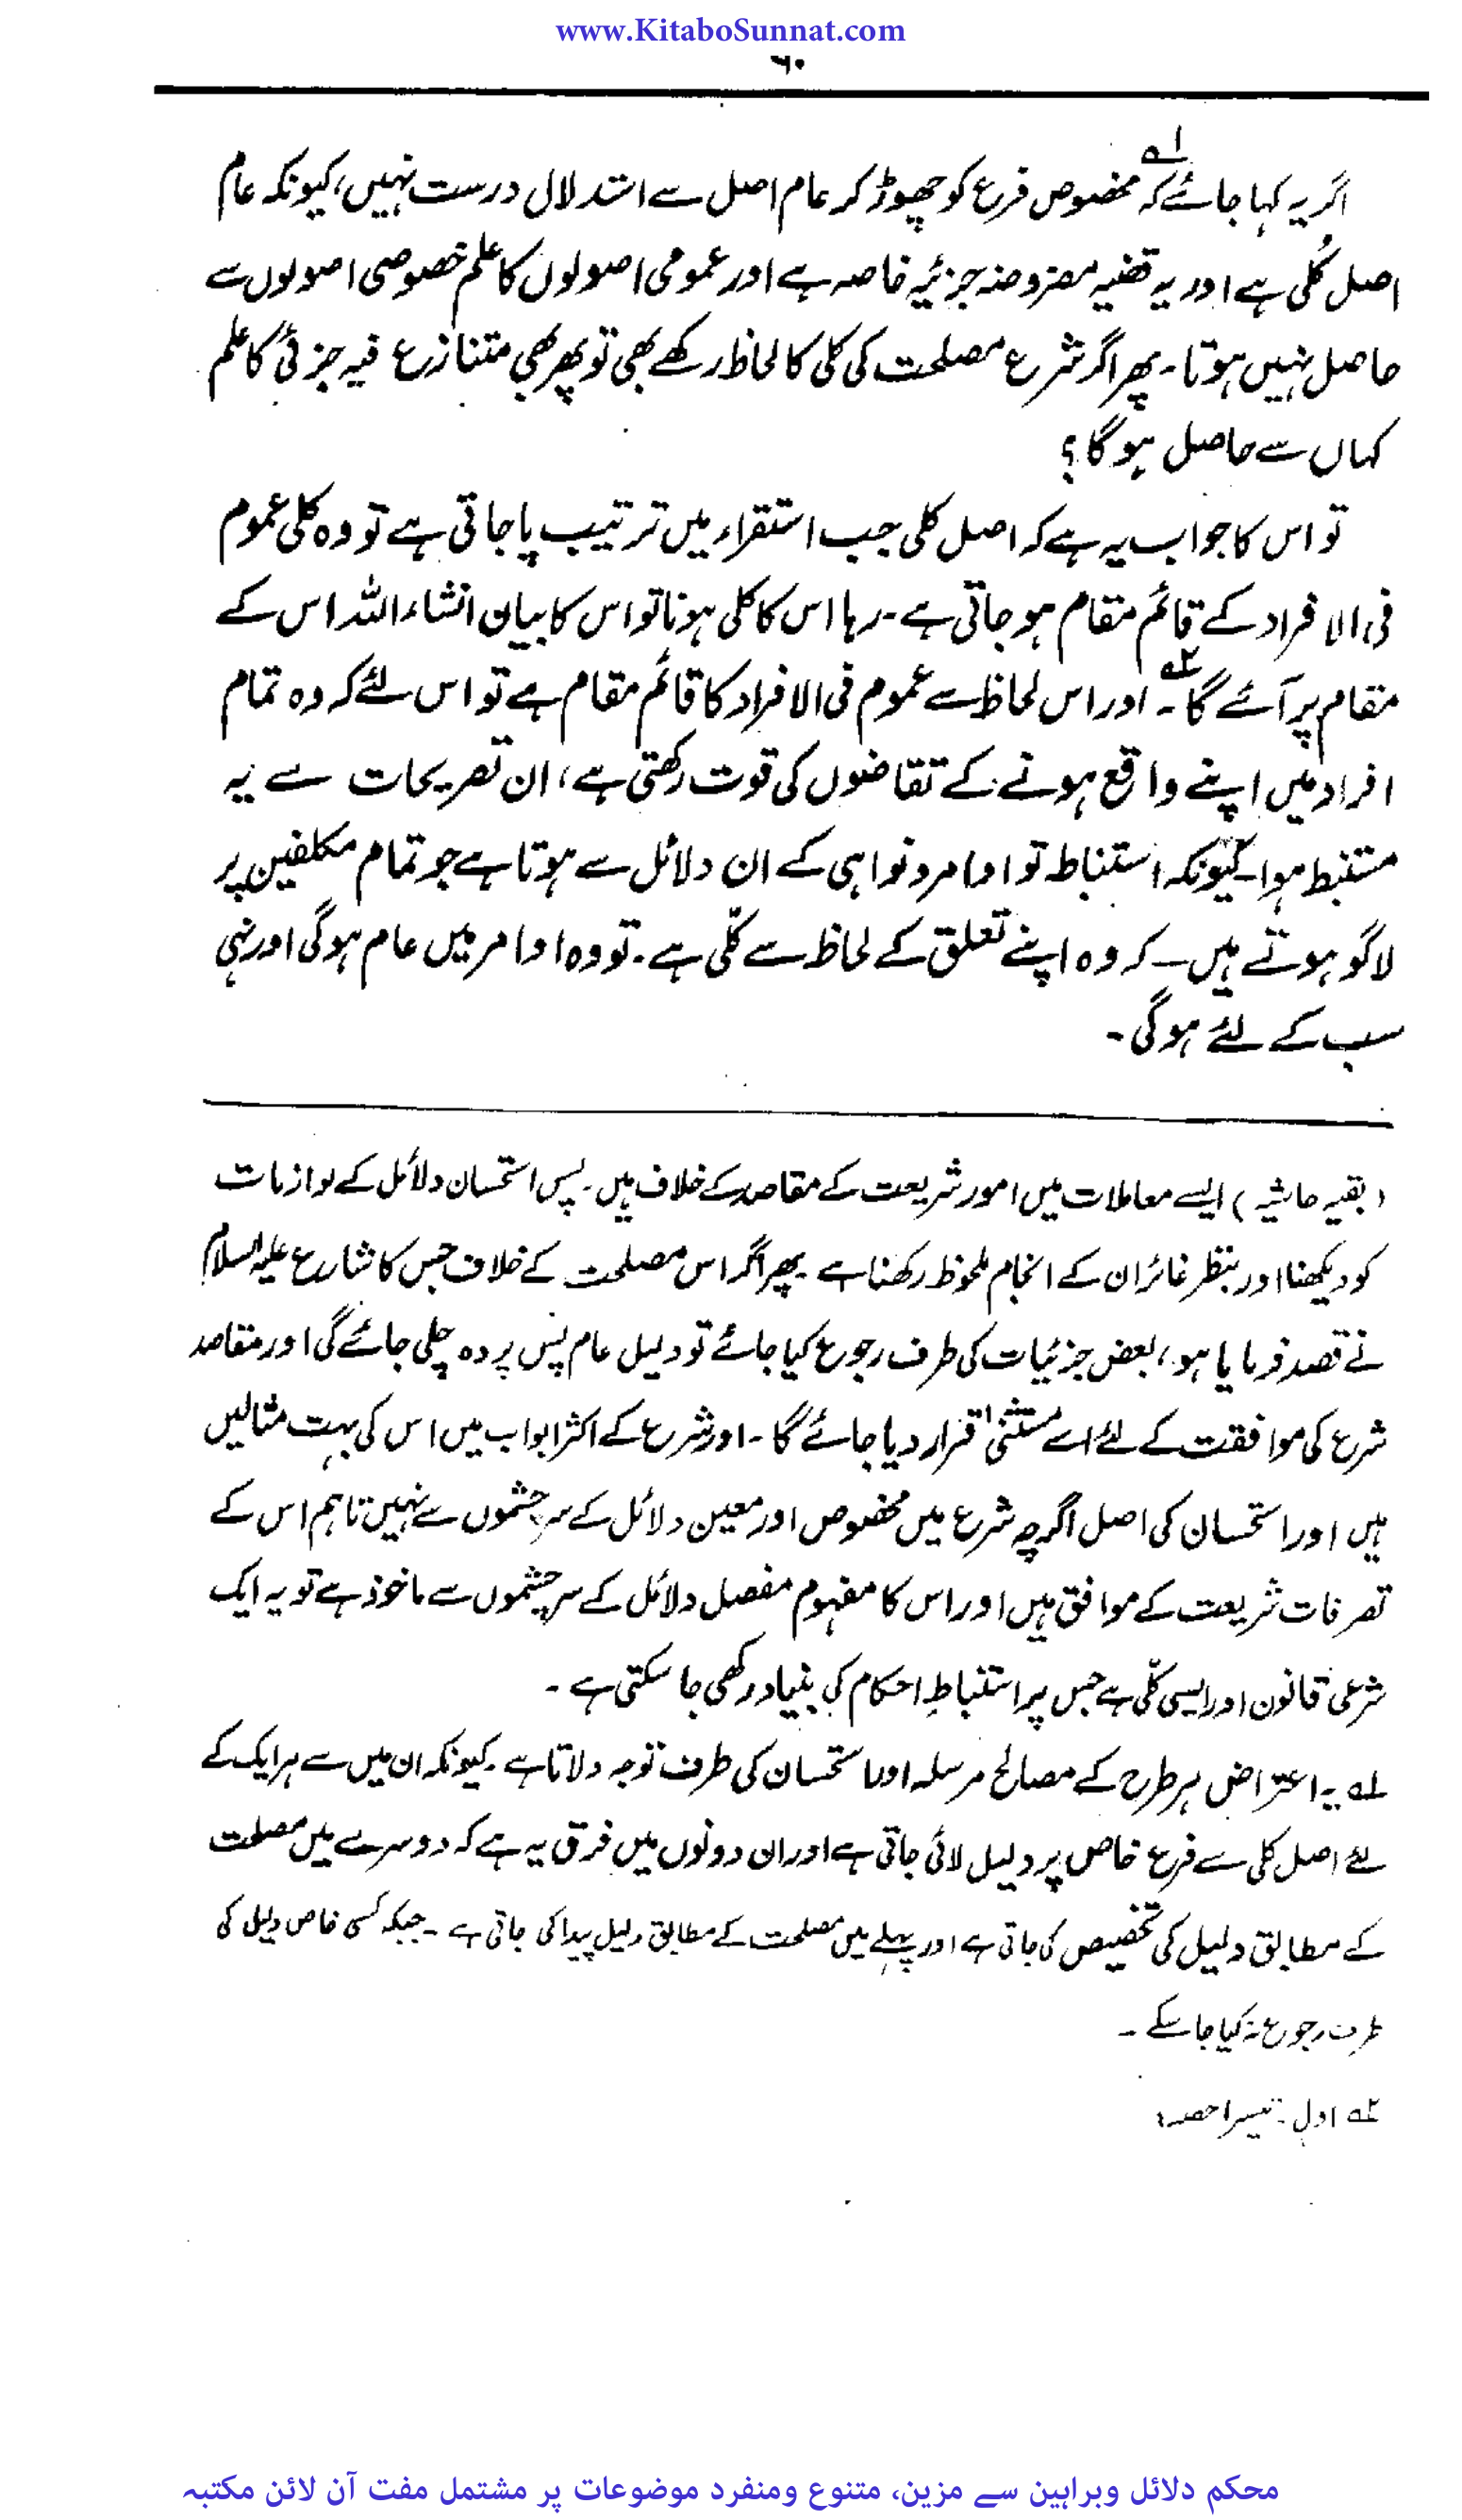 www.KitaboSunnat.com
۶۰
اگر یہ کہا جائے کہ ۱؎ مخصوص فرع کو چھوڑ کر عام اصل سے استدلال درست نہیں، کیونکہ عام
اصل کُلی ہے اور یہ قضیہ مفروضہ جزئیہ خاصہ ہے اور عمومی اصولوں کا علم خصوصی اصولوں سے
حاصل نہیں ہوتا۔ پھر اگر شرع مصلحت کی کلی کا لحاظ رکھے بھی تو پھر بھی متنازع فیہ جزئی کا علم
کہاں سے حاصل ہوگا؟
تو اس کا جواب یہ ہے کہ اصل کلی جب استقراء میں ترتیب پا جاتی ہے تو وہ کلی عموم
فی الافراد کے قائم مقام ہو جاتی ہے۔ رہا اس کا کلی ہونا تو اس کا بیان انشاء اللہ اس کے
مقام پر آئے گا۔ ۲؎ اور اس لحاظ سے عموم فی الافراد کا قائم مقام ہے تو اس لئے کہ وہ تمام
افراد میں اپنے واقع ہونے کے تقاضوں کی قوت رکھتی ہے، ان تصریحات سے یہ
مستنبط ہوا۔ کیونکہ استنباط تو اوامر و نواہی کے ان دلائل سے ہوتا ہے جو تمام مکلفین پر
لاگو ہوتے ہیں۔ کہ وہ اپنے تعلق کے لحاظ سے کلّی ہے۔ تو وہ اوامر میں عام ہوگی اور نہی
سب کے لئے ہوگی۔
(بقیہ حاشیہ) ایسے معاملات میں امور شریعت کے مقاصد کے خلاف ہیں۔ پس استحسان دلائل کے لوازمات
کو دیکھنا اور بنظر غائر ان کے انجام ملحوظ رکھنا ہے۔ پھر اگر اس مصلحت کے خلاف جس کا شارع علیہ السلام
نے قصد فرمایا ہو، بعض جزئیات کی طرف رجوع کیا جائے تو دلیل عام پس پردہ چلی جائے گی اور مقاصد
شرع کی موافقت کے لئے اسے مستثنیٰ قرار دیا جائے گا۔ اور شرع کے اکثر ابواب میں اس کی بہت مثالیں
ہیں اور استحسان کی اصل اگرچہ شرع میں مخصوص اور معین دلائل کے سرچشموں سے نہیں تاہم اس کے
تصرفات شریعت کے موافق ہیں اور اس کا مفہوم مفصل دلائل کے سرچشموں سے ماخوذ ہے تو یہ ایک
شرعی قانون اور ایسی کلّی ہے جس پر استنباطِ احکام کی بنیاد رکھی جا سکتی ہے۔
۱؎ یہ اعتراض ہر طرح کے مصالح مرسلہ اور استحسان کی طرف توجہ دلاتا ہے۔ کیونکہ ان میں سے ہر ایک کے
لئے اصل کلی سے فرع خاص پر دلیل لائی جاتی ہے اور ان دونوں میں فرق یہ ہے کہ دوسرے میں مصلحت
کے مطابق دلیل کی تخصیص کی جاتی ہے اور پہلے میں مصلحت کے مطابق دلیل پیدا کی جاتی ہے۔ جبکہ کسی خاص دلیل کی
طرف رجوع نہ کیا جا سکے۔
۲؎ اول۔ تیسرا حصہ؛
محکم دلائل وبراہین سے مزین، متنوع ومنفرد موضوعات پر مشتمل مفت آن لائن مکتبہ